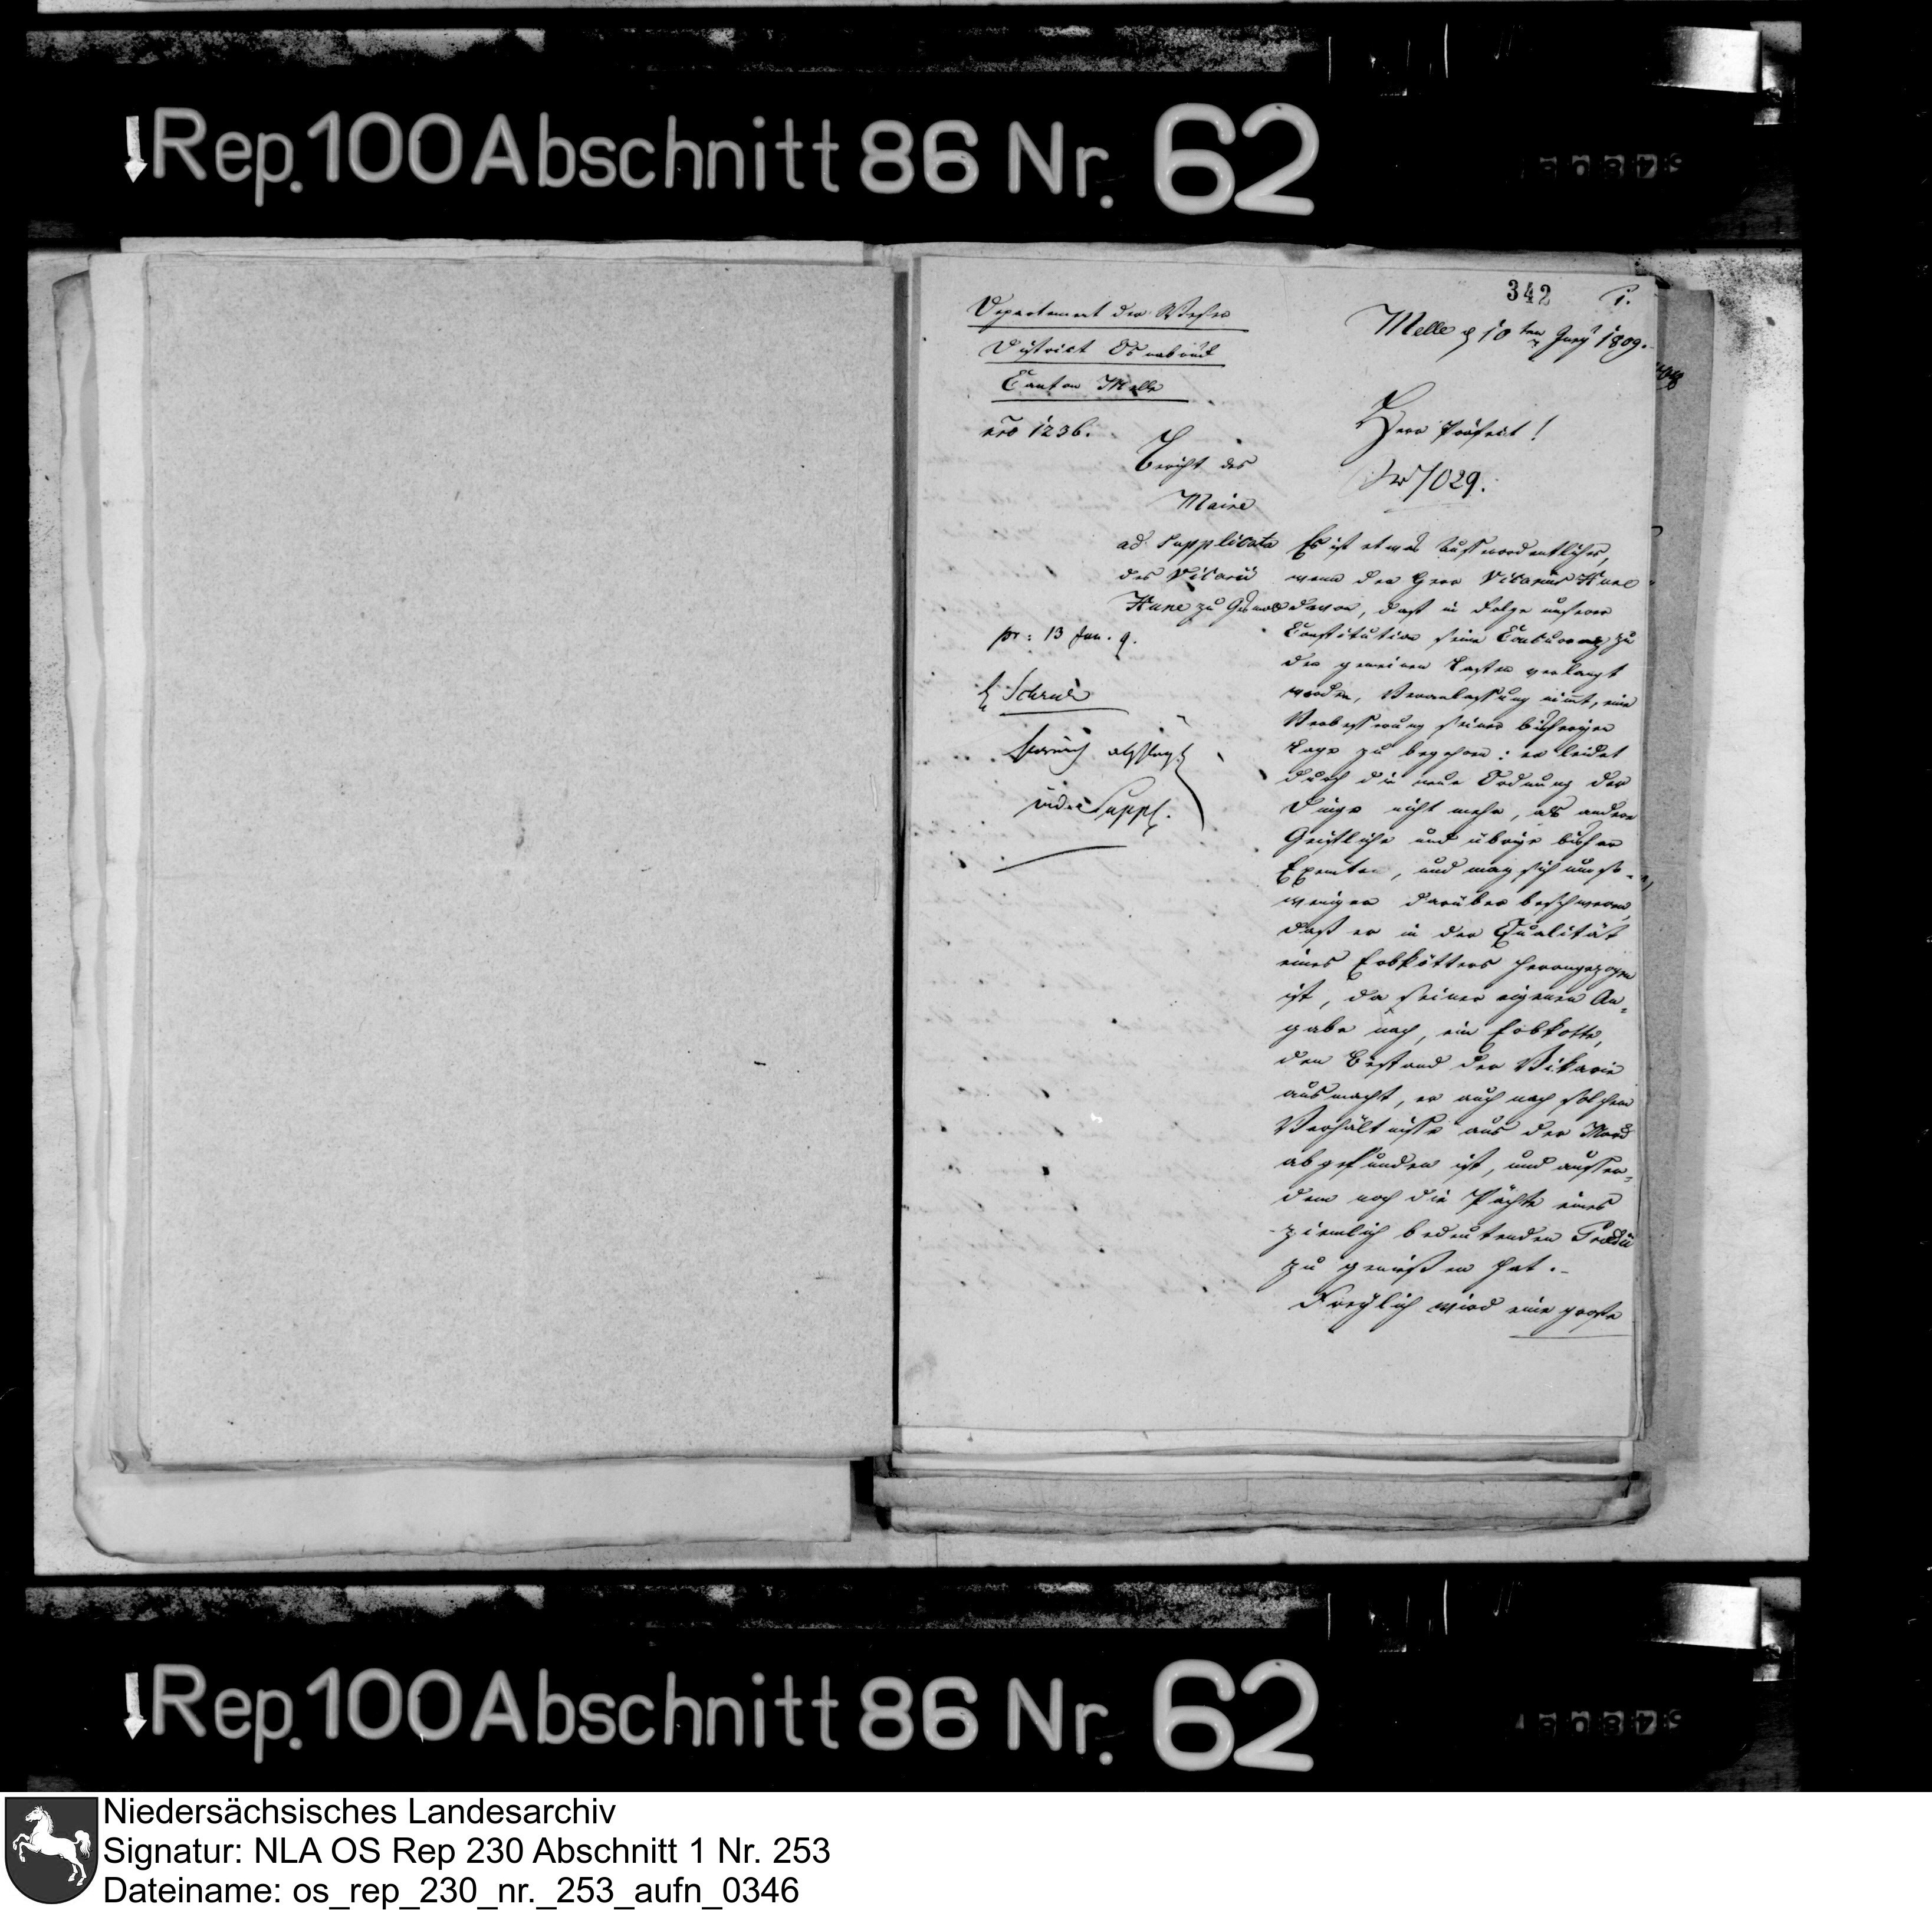 Rep. 100 Abschnitt 86 Nr. 62
342
Departement der Weser
District Osnabrück
Canton Melle
nro 1236.
Bericht des
Maire
ad Supplicata
des Vicarii
Hune zu
pr: 13 Jun. 9.
vide Suppl.
Melle d 10ten Juny 1809.
Herr Präfect!
1029.
Es ist etwas Ausserordentliches,
wenn der Herr Vicarius Hune
davon, dass in Folge unserer
Constitution seine zu
den gemeinen Lasten verlangt
worden, Veranlassung nimt, eine
Verbesserung seiner bisherigen
Lage zu begehren: er leidet
durch die neue Ordnung der
Dinge nicht mehr, als andere
Geistliche und übrige bisher
Exemten, und mag sich umso-
weniger darüber beschweren,
daß er in der Qualität
eines Erbkötters herangezogen
ist, da seiner eigenen An-
gabe nach, ein Erbkotte,
den Bestand der Vikarie
ausmacht, er auch nach solchem
Verhältnisse aus der Mark
abgefunden ist, und ausser-
dem noch die Pächte eines
ziemlich bedeutenden Prædii
zu genießen hat.-
Freylich wird eine große
Rep. 100 Abschnitt 86 Nr. 62
Niedersächsisches Landesarchiv
Signatur: NLA OS Rep 230 Abschnitt 1 Nr. 253
Dateiname: os_rep_230_nr._253_aufn_0346